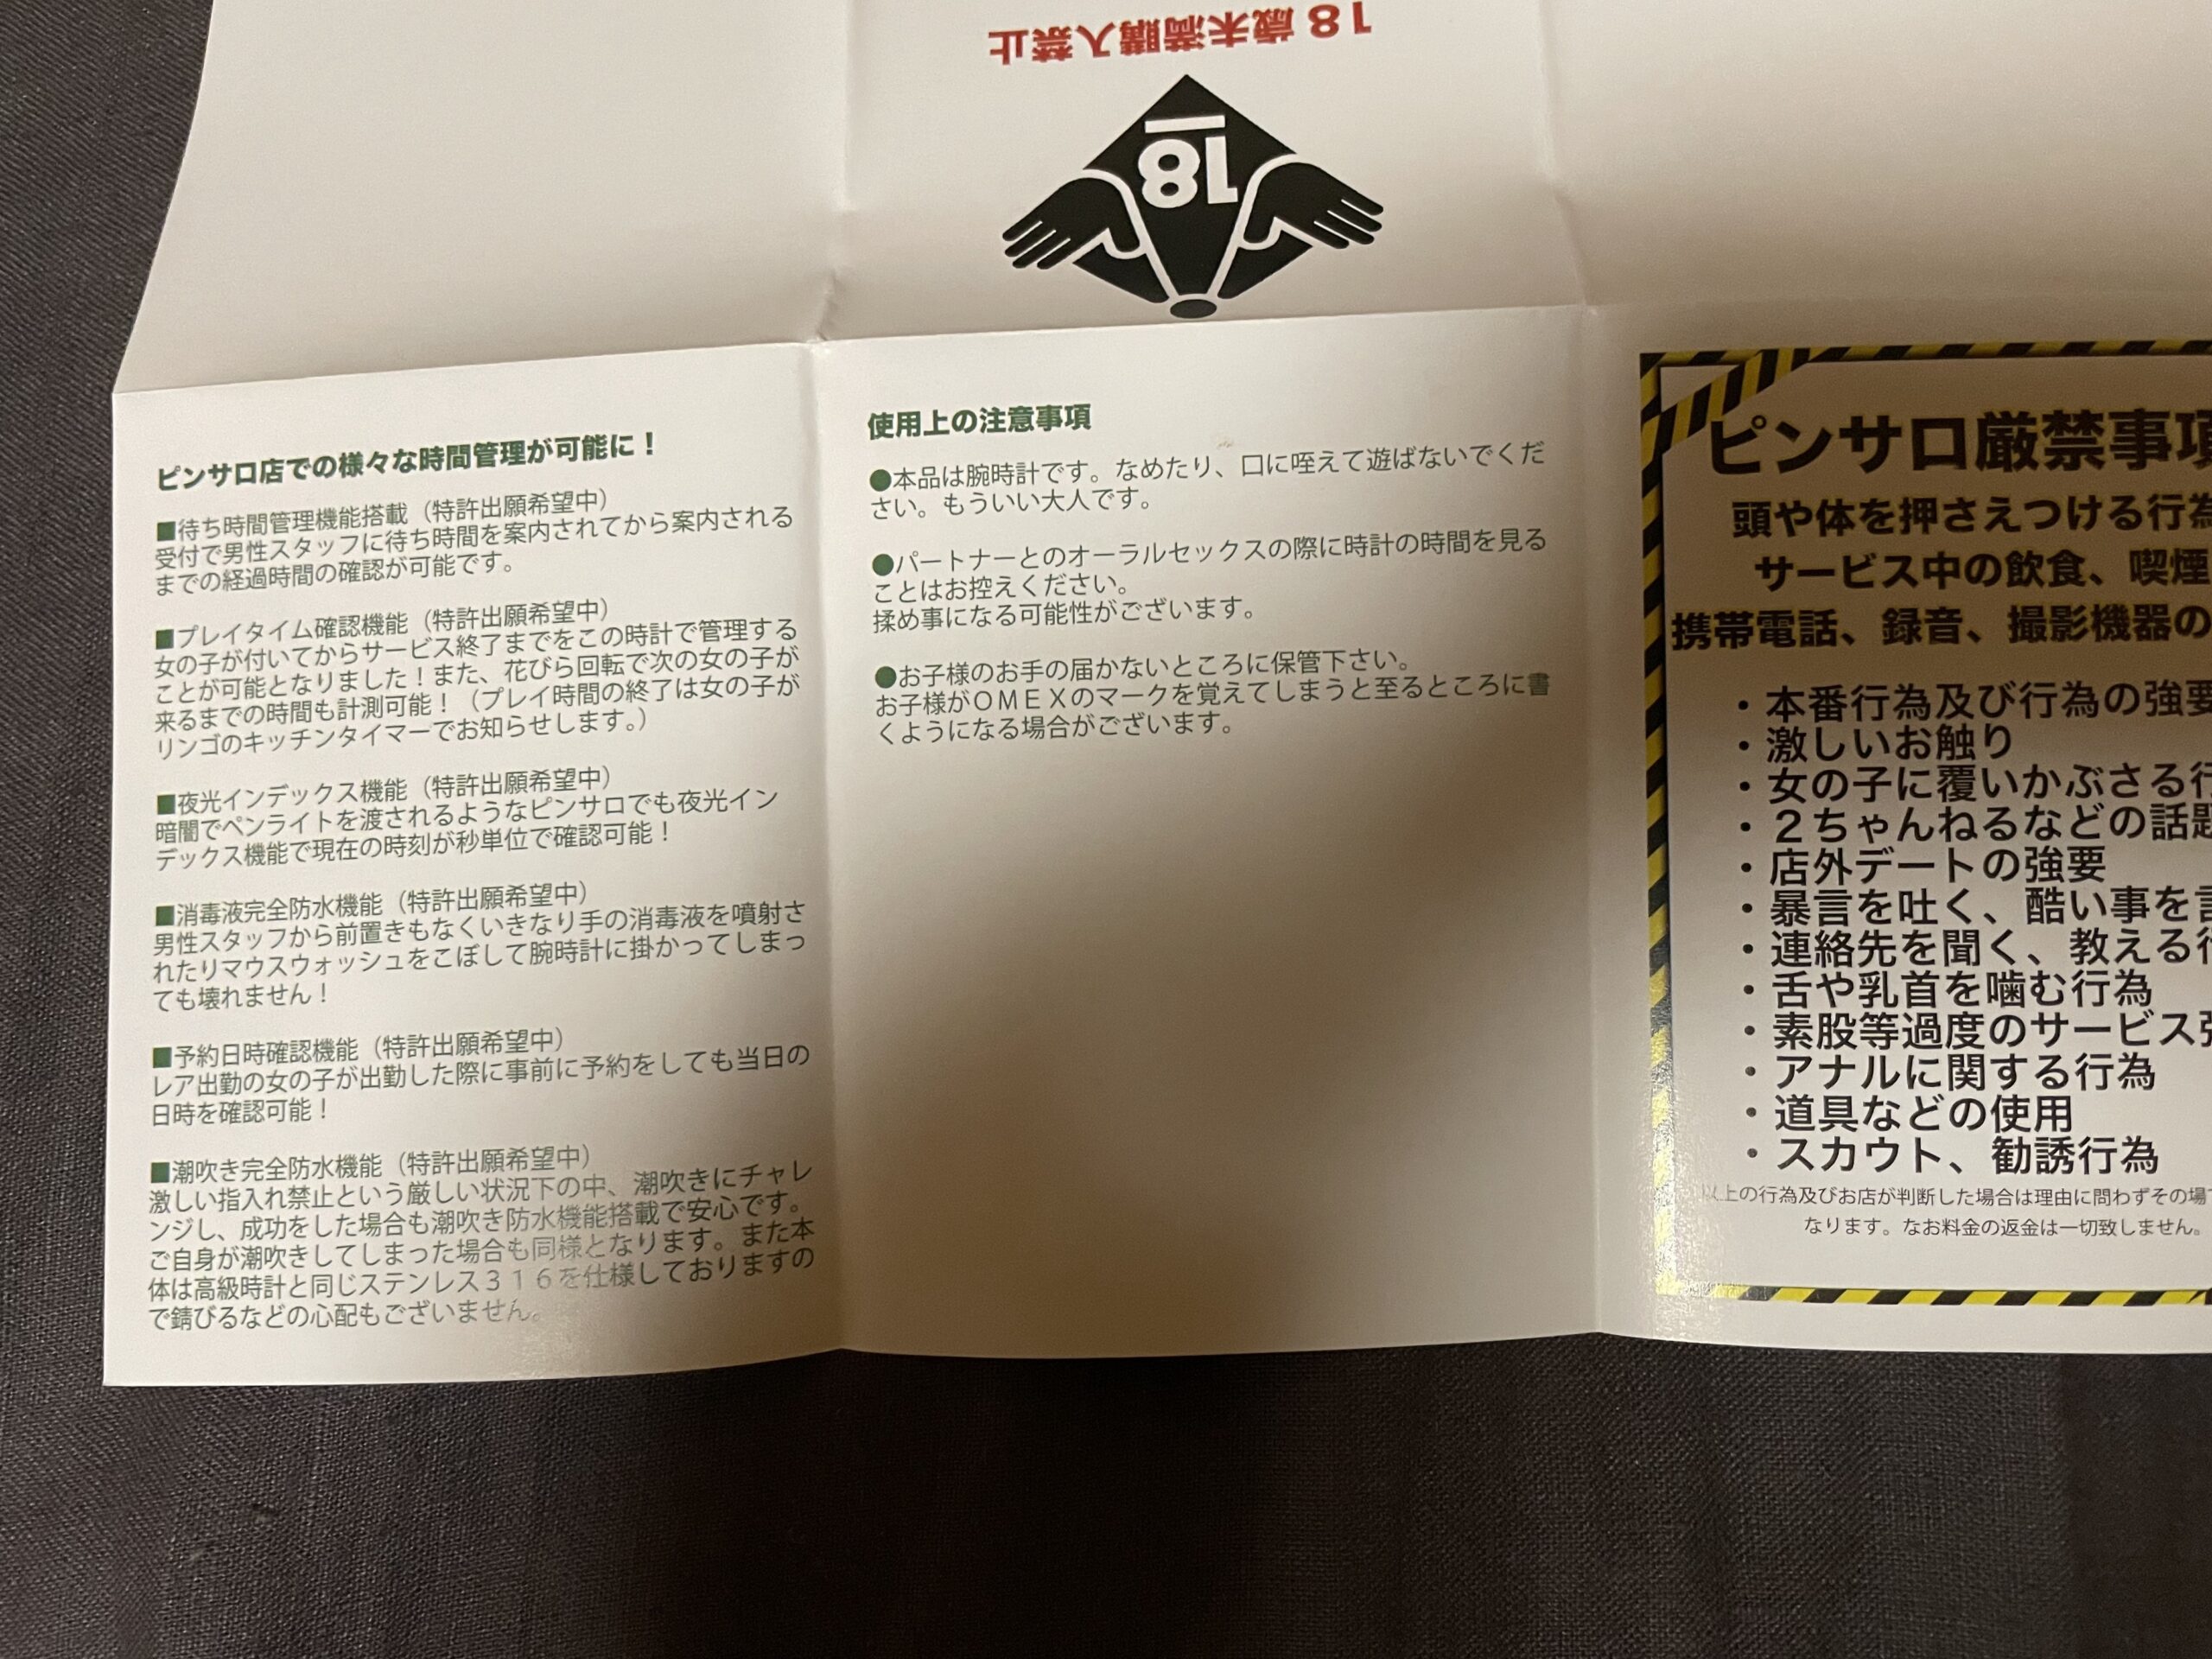 18歳未満購入禁止
18
ピンサロ店での様々な時間管理が可能に！
■待ち時間管理機能搭載（特許出願希望中）
受付で男性スタッフに待ち時間を案内されてから案内される
までの経過時間の確認が可能です。
■プレイタイム確認機能（特許出願希望中）
女の子が付いてからサービス終了までをこの時計で管理する
ことが可能となりました！また、花びら回転で次の女の子が
来るまでの時間も計測可能！（プレイ時間の終了は女の子が
リンゴのキッチンタイマーでお知らせします。）
■夜光インデックス機能（特許出願希望中）
暗闇でペンライトを渡されるようなピンサロでも夜光イン
デックス機能で現在の時刻が秒単位で確認可能！
■消毒液完全防水機能（特許出願希望中）
男性スタッフから前置きもなくいきなり手の消毒液を噴射さ
れたりマウスウォッシュをこぼして腕時計に掛かってしまっ
ても壊れません！
■予約日時確認機能（特許出願希望中）
レア出勤の女の子が出勤した際に事前に予約をしても当日の
日時を確認可能！
■潮吹き完全防水機能（特許出願希望中）
激しい指入れ禁止という厳しい状況下の中、潮吹きにチャレ
ンジし、成功をした場合も潮吹き防水機能搭載で安心です。
ご自身が潮吹きしてしまった場合も同様となります。また本
体は高級時計と同じステンレス３１６を仕様しておりますの
で錆びるなどの心配もございません。
使用上の注意事項
●本品は腕時計です。なめたり、口に咥えて遊ばないでくだ
さい。もういい大人です。
●パートナーとのオーラルセックスの際に時計の時間を見る
ことはお控えください。
揉め事になる可能性がございます。
●お子様のお手の届かないところに保管下さい。
お子様がＯＭＥＸのマークを覚えてしまうと至るところに書
くようになる場合がございます。
ピンサロ厳禁事項
頭や体を押さえつける行為
サービス中の飲食、喫煙
携帯電話、録音、撮影機器の
・本番行為及び行為の強要
・激しいお触り
・女の子に覆いかぶさる行
・２ちゃんねるなどの話題
・店外デートの強要
・暴言を吐く、酷い事を言
・連絡先を聞く、教える行
・舌や乳首を噛む行為
・素股等過度のサービス強
・アナルに関する行為
・道具などの使用
・スカウト、勧誘行為
以上の行為及びお店が判断した場合は理由に問わずその場で
なります。なお料金の返金は一切致しません。